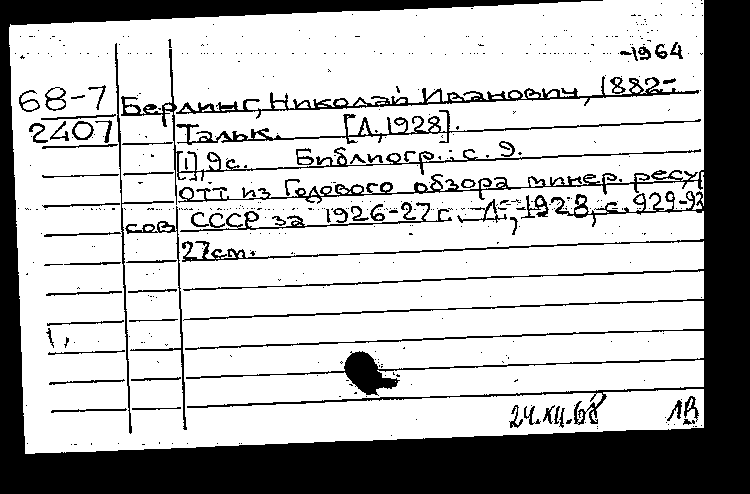 -1964
68-7 Берлинг, Николай Иванович, 1882-
2407 Тальк. [Л., 1928].
[1], 9 с. Библиогр.: с. 9.
Отт. из Годового обзора минер. ресур
сов СССР за 1926-27 г. Л., 1928, с. 929-93
27 см.
1,
24.XII.68 ЛВ